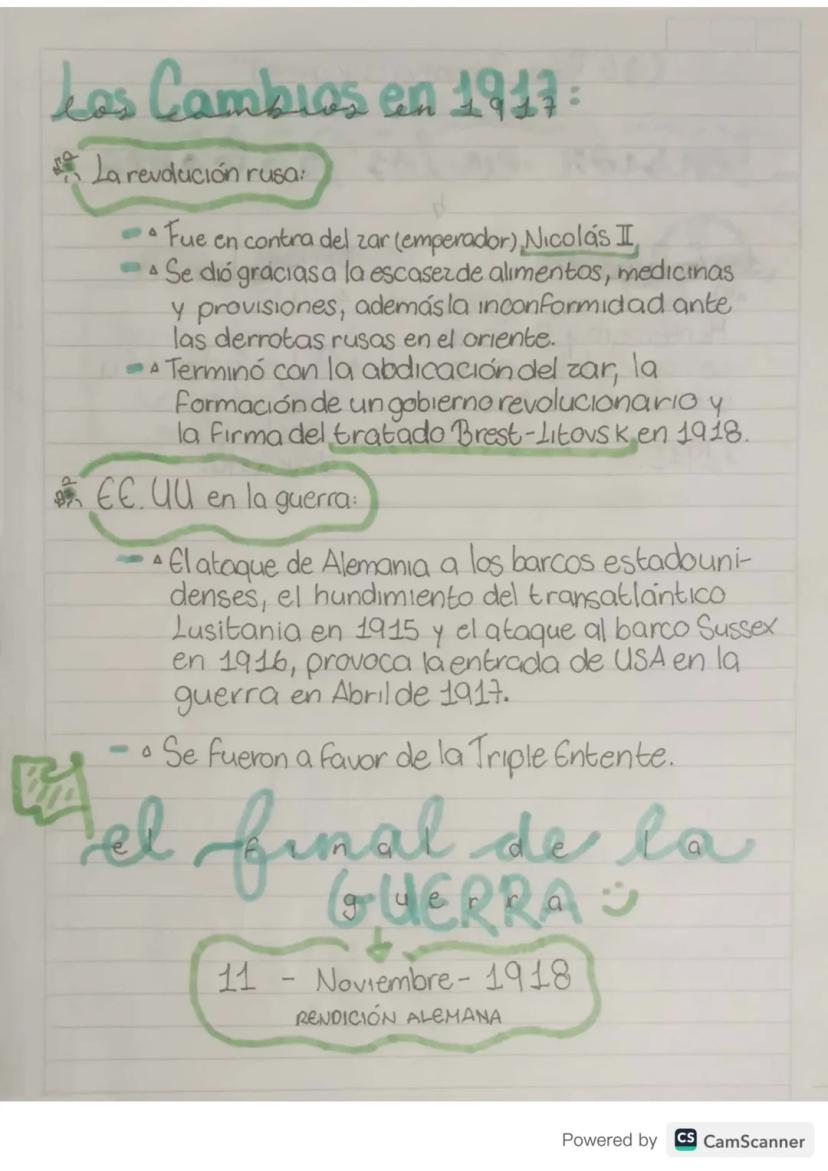 Los Cambios en 1917:
La revolución rusa:
Fue en contra del zar (emperador) Nicolás II
Se dió gracias a la escasez de alimentos, medicinas
y provisiones, además la inconformidad ante
las derrotas rusas en el oriente.
Terminó con la abdicación del zar, la
formación de un gobierno revolucionario y
la firma del tratado Brest-Litovsk en 1918.
EE.UU en la guerra:
El ataque de Alemania a los barcos estadouni-
denses, el hundimiento del transatlántico
Lusitania en 1915 y el ataque al barco Sussex
en 1916, provoca la entrada de USA en la
guerra en Abril de 1917.
Se fueron a favor de la Triple Entente.
el final de la
GUERRA
11 - Noviembre - 1918
RENDICIÓN ALEMANA
Powered by CS CamScanner